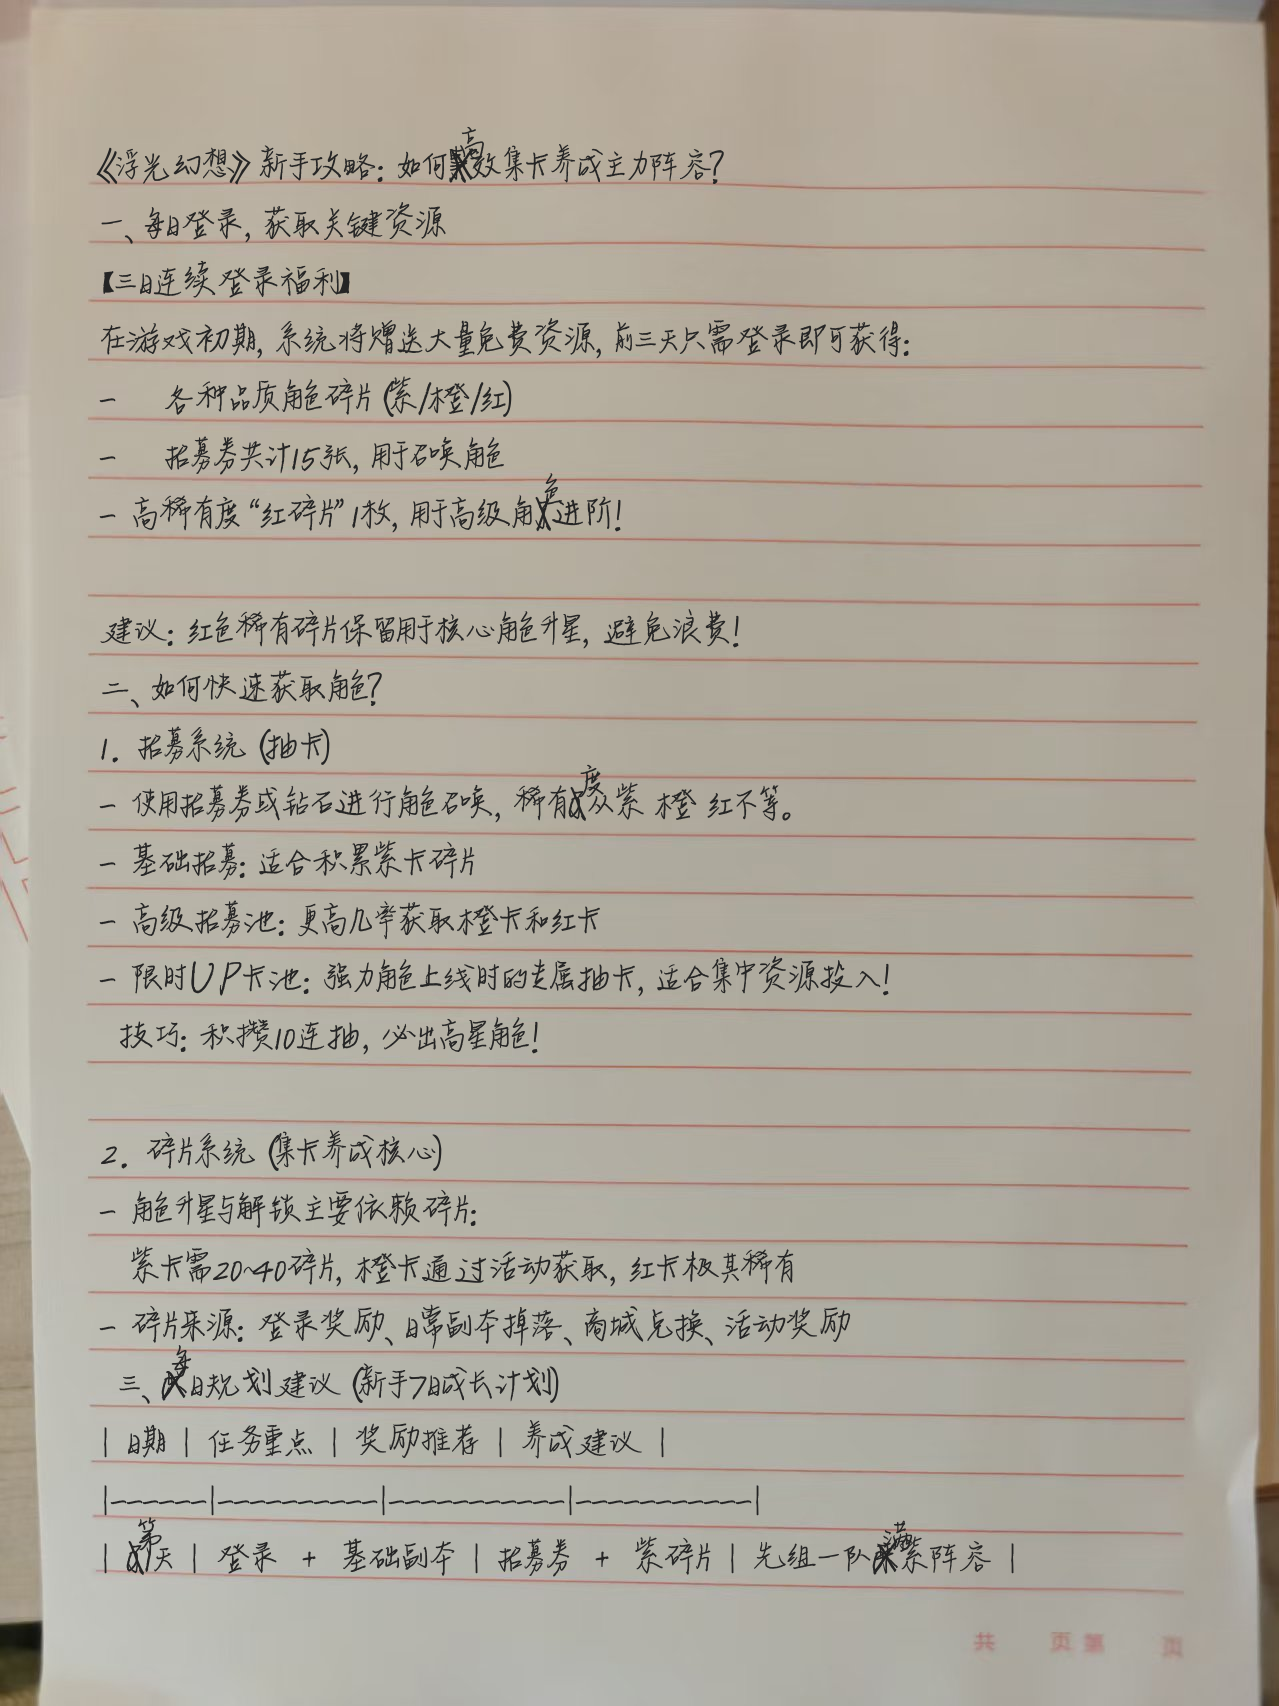 《浮光幻想》新手攻略：如何高效集卡养成主力阵容？
一、每日登录，获取关键资源
【三日连续登录福利】
在游戏初期，系统将赠送大量免费资源，前三天只需登录即可获得：
- 各种品质角色碎片（紫/橙/红）
- 招募券共计15张，用于召唤角色
- 高稀有度“红碎片”1枚，用于高级角色进阶！
建议：红色稀有碎片保留用于核心角色升星，避免浪费！
二、如何快速获取角色？
1. 招募系统（抽卡）
- 使用招募券或钻石进行角色召唤，稀有度从紫 橙 红不等。
- 基础招募：适合积累紫卡碎片
- 高级招募池：更高几率获取橙卡和红卡
- 限时UP卡池：强力角色上线时的专属抽卡，适合集中资源投入！
技巧：积攒10连抽，必出高星角色！
2. 碎片系统（集卡养成核心）
- 角色升星与解锁主要依赖碎片：
紫卡需20~40碎片，橙卡通过活动获取，红卡极其稀有
- 碎片来源：登录奖励、日常副本掉落、商城兑换、活动奖励
三、每日规划建议（新手7日成长计划）
| 日期 | 任务重点 | 奖励推荐 | 养成建议 |
|------|----------|-----------|-----------|
| 第1天 | 登录 + 基础副本 | 招募券 + 紫碎片 | 先组一队满紫阵容 |
共 页 第 页